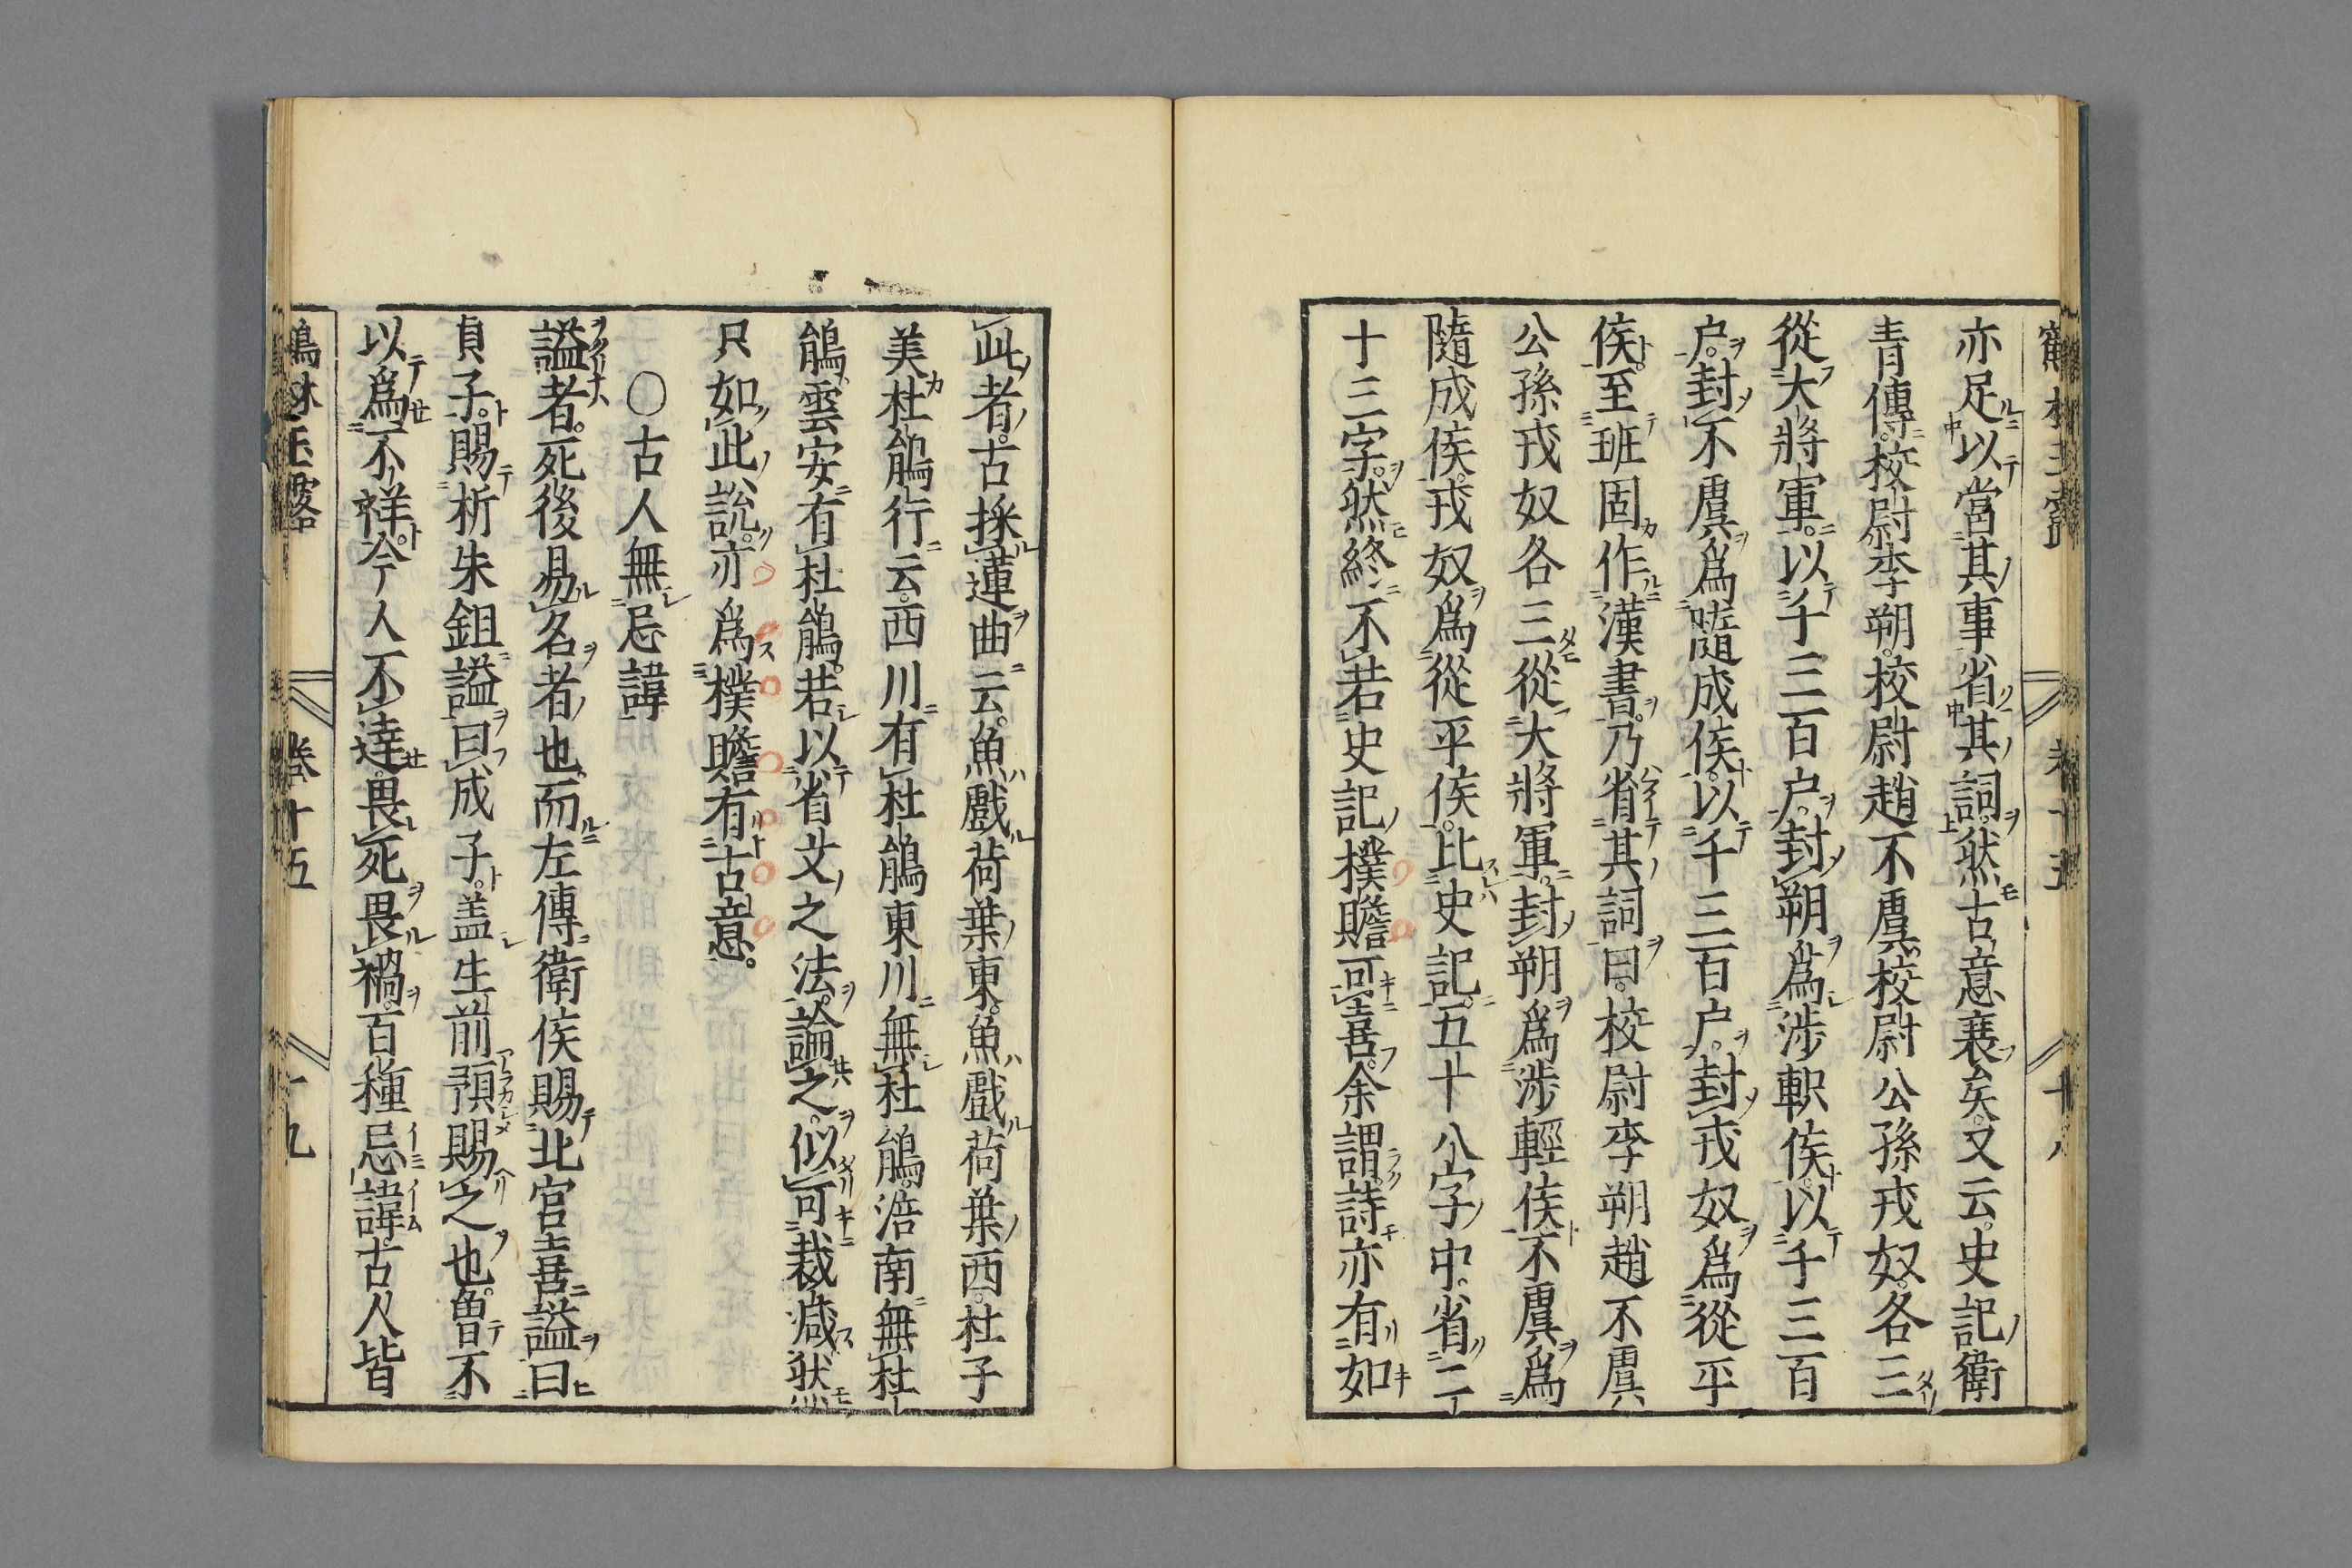 亦足以當其事省其詞然古意衰矣又云史記衛
青傳校尉李朔校尉趙不虞校尉公孫戎奴各三
從大將軍以千三百户封朔爲涉軹侯以千三百
户封不虞爲隨成侯以千三百户封戎奴爲從平
侯至班固作漢書乃省其詞曰校尉李朔趙不虞
公孫戎奴各三從大將軍封朔爲涉輕侯不虞爲
隨成侯戎奴爲從平侯比史記五十八字中省二
十三字然終不若史記樸贍可喜余謂詩亦有如
此者古採蓮曲云魚戲荷葉東魚戲荷葉西杜子
美杜鵑行云西川有杜鵑東川無杜鵑涪南無杜
鵑雲安有杜鵑若以省文之法論之似可裁减然
只如此說亦爲樸贍有古意
〇古人無忌諱
謚者死後易名者也而左傳衛侯賜北宮喜謚曰
貞子賜析朱鉏謚曰成子盖生前預賜之也魯不
以爲不祥今人不達畏死畏禍百種忌諱古人皆
鶴林玉露 卷十五 十九